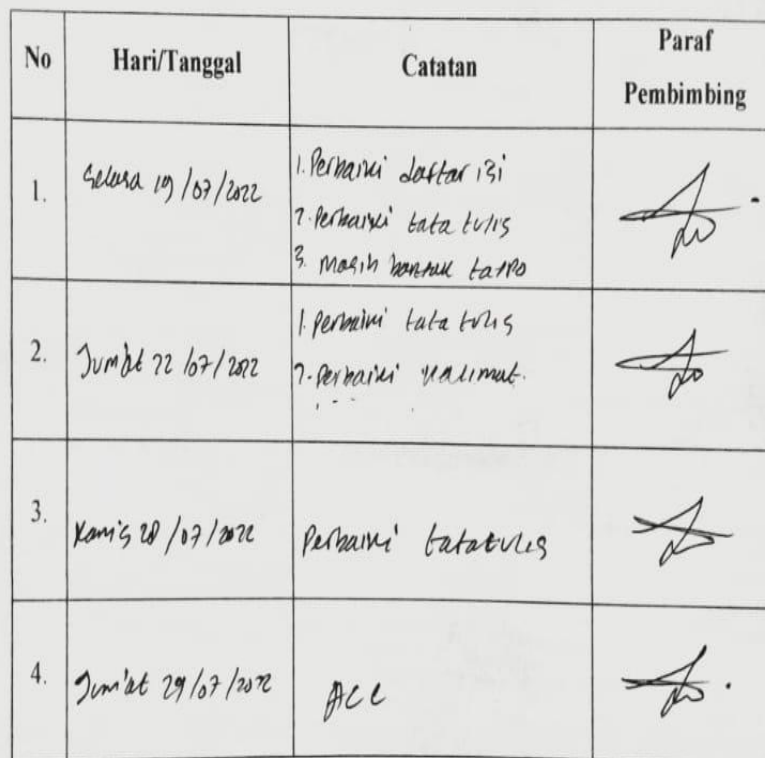 No Hari/Tanggal Catatan Paraf Pembimbing
1. Selasa 19/07/2022
1. Perbaiki daftar isi
2. Perbaiki tata tulis
3. Masih banyak taipo
2. Jum'at 22/07/2022
1. perbaiki tata tulis
2. perbaiki kalimat.
3. Kamis 28/07/2022 Perbaiki tatatulis
4. Jum'at 29/07/2022 ACC